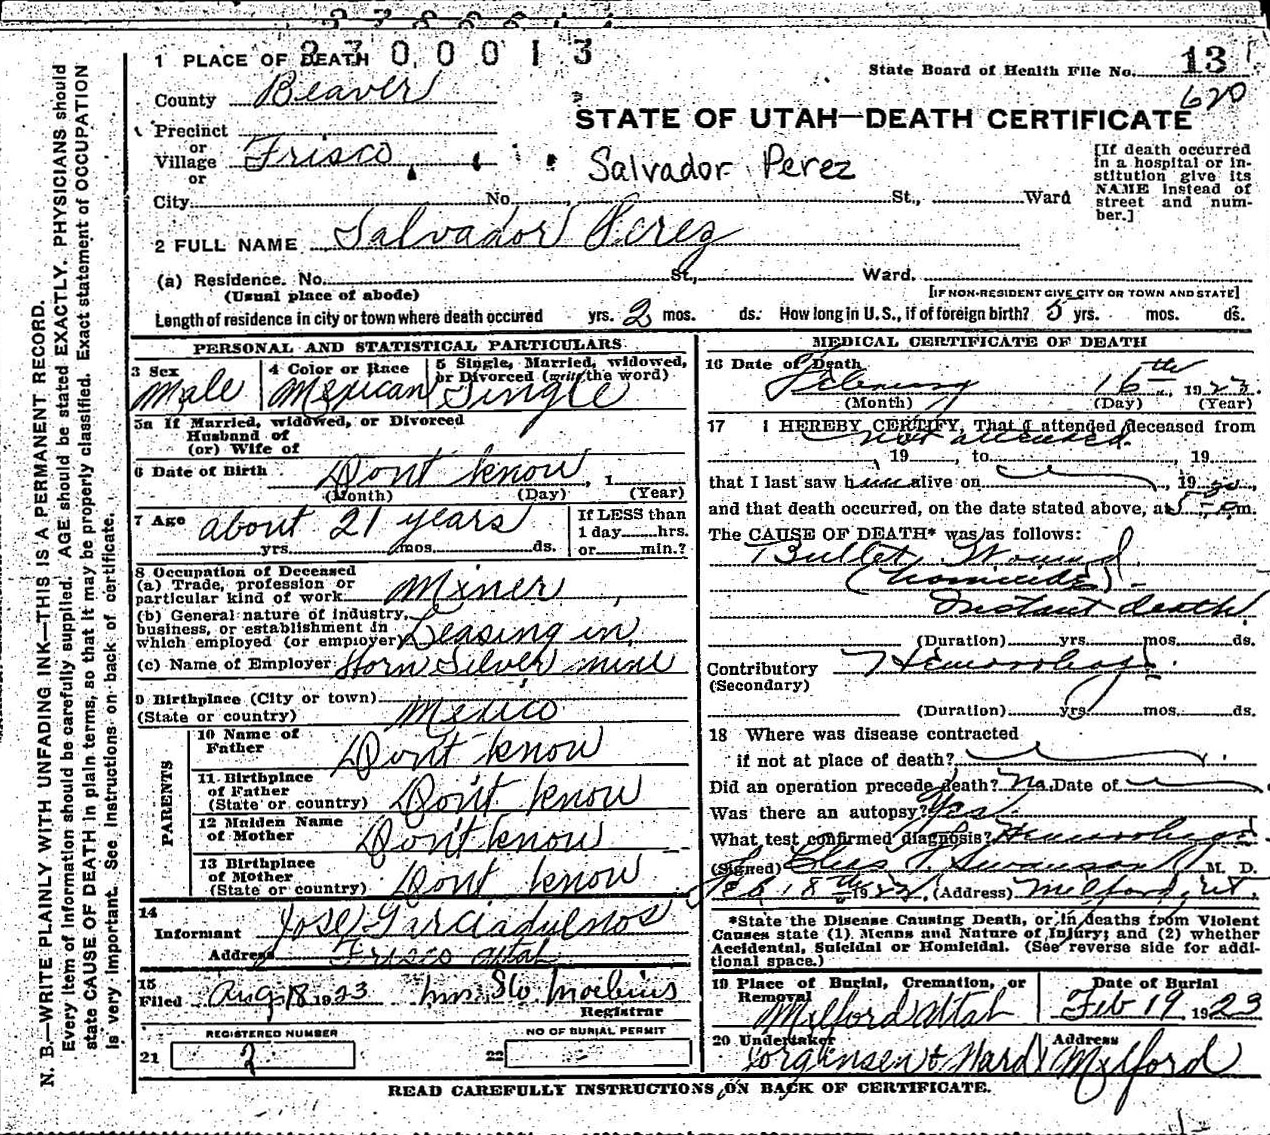 2300013
1 PLACE OF DEATH
State Board of Health File No. 13
620
County Beaver
STATE OF UTAH—DEATH CERTIFICATE
Precinct
or
Village Frisco
or
Salvador Perez
[If death occurred in a hospital or institution give its NAME instead of street and number.]
City No. St., Ward
2 FULL NAME Salvador Perez
(a) Residence. No. St, Ward.
(Usual place of abode)
[IF NON-RESIDENT GIVE CITY OR TOWN AND STATE]
Length of residence in city or town where death occured yrs. 2 mos. ds. How long in U.S., if of foreign birth? 5 yrs. mos. ds.
PERSONAL AND STATISTICAL PARTICULARS
3 Sex
Male
4 Color or Race
Mexican
5 Single, Married, widowed, or Divorced (write the word)
Single
5a If Married, widowed, or Divorced
Husband of
(or) Wife of
6 Date of Birth Dont know, 1
(Month) (Day) (Year)
7 Age about 21 years
yrs. mos. ds.
If LESS than
1 day hrs.
or min.?
8 Occupation of Deceased
(a) Trade, profession or
particular kind of work Miner
(b) General nature of industry,
business, or establishment in
which employed (or employer) Leasing in
(c) Name of Employer Horn Silver mine
9 Birthplace (City or town)
(State or country) Mexico
PARENTS
10 Name of
Father Dont know
11 Birthplace
of Father
(State or country) Don't know
12 Maiden Name
of Mother Don't know
13 Birthplace
of Mother
(State or country) Dont know
14
Informant Jose Garciaduenos
Address Frisco Utah
15
Filed Aug 18 1923 Mrs. Moebius
Registrar
REGISTERED NUMBER
21 2
NO OF BURIAL PERMIT
22 -
MEDICAL CERTIFICATE OF DEATH
16 Date of Death
February 16th, 1923.
(Month) (Day) (Year)
17 I HEREBY CERTIFY, That I attended deceased from
not attended.
, 19 , to , 19
that I last saw h alive on , 19
and that death occurred, on the date stated above, at m.
The CAUSE OF DEATH* was as follows:
Bullet Wound
(Homicide) -
Instant death
(Duration) yrs. mos. ds.
Contributory Hemorrhage.
(Secondary)
(Duration) yrs mos. ds.
18 Where was disease contracted
if not at place of death?
Did an operation precede death? No. Date of
Was there an autopsy? Yes.
What test confirmed diagnosis? Hemorrhage
(Signed) Chas. Swanson M. D.
Feb 18th 1923, (Address) Milford, Ut.
*State the Disease Causing Death, or in deaths from Violent
Causes state (1) Means and Nature of Injury; and (2) whether
Accidental, Suicidal or Homicidal. (See reverse side for addi-
tional space.)
19 Place of Burial, Cremation, or
Removal
Milford Utah
Date of Burial
Feb 19 1923
20 Undertaker
Jorgensen & Ward
Address
Milford
READ CAREFULLY INSTRUCTIONS ON BACK OF CERTIFICATE.
N. B.—WRITE PLAINLY WITH UNFADING INK—THIS IS A PERMANENT RECORD.
Every item of information should be carefully supplied. AGE should be stated EXACTLY. PHYSICIANS should
state CAUSE OF DEATH in plain terms, so that it may be properly classified. Exact statement of OCCUPATION
is very important. See instructions on back of certificate.